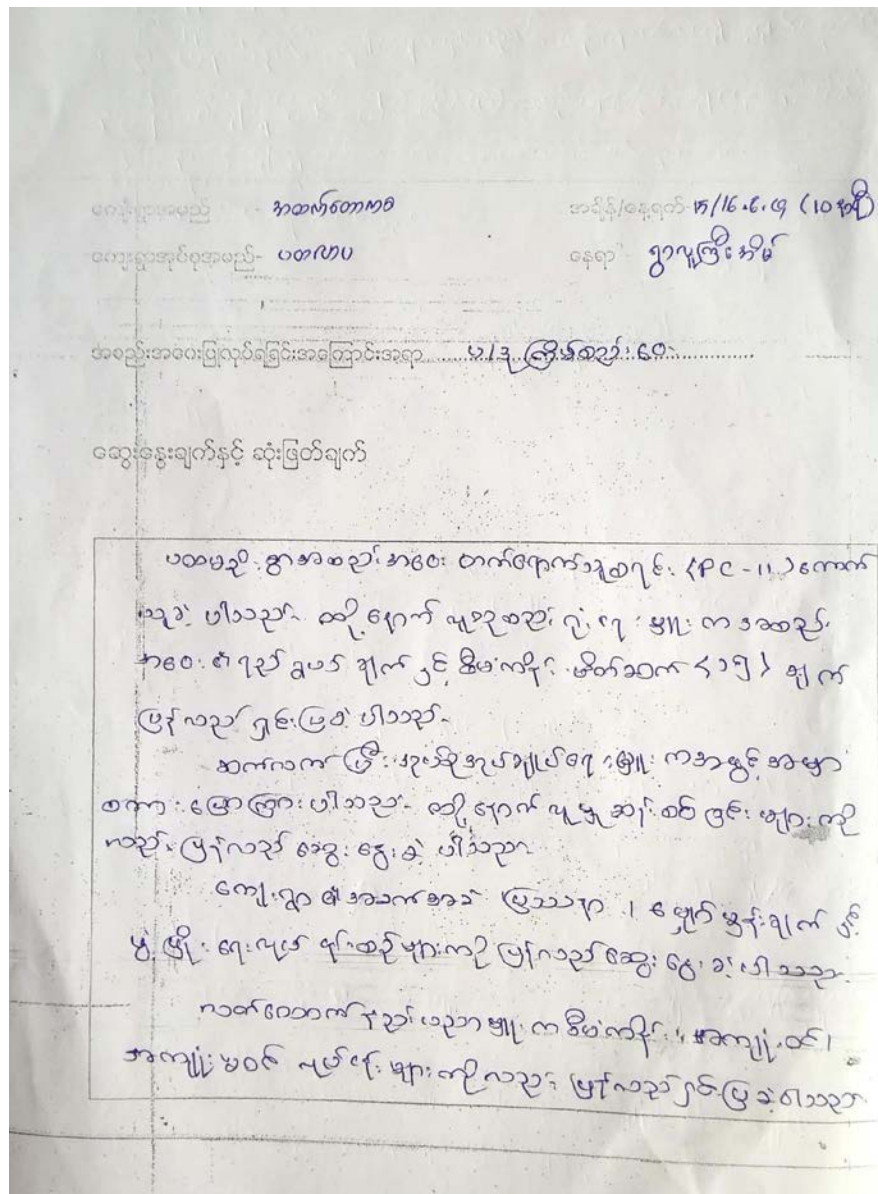 ကျေးရွာအမည် - အထက်တောကစ အချိန်/နေ့ရက်- /16.6. (10 နာရီ)
ကျေးရွာအုပ်စုအမည်- ပတလာပ နေရာ - ရွာလူကြီးအိမ်
အစည်းအဝေးပြုလုပ်ရခြင်းအကြောင်းအရာ ........ ပ/ဒု ကြိမ်စည်းဝေး
ဆွေးနွေးချက်နှင့် ဆုံးဖြတ်ချက်
ပထမဦးစွာအစည်းအဝေး တက်ရောက်သူစာရင်း (PC-11) ကောက်
ယူခဲ့ပါသည်။ ထို့နောက် လူစုစည်းရုံးရေးမှူးကအစည်း
အဝေး၏ရည်ရွယ်ချက်နှင့်စီမံကိန်း စိတ်ဆက် (၁၅) ချက်
ပြန်လည်ရှင်းပြခဲ့ပါသည်။
ဆက်လက်ပြီးအုပ်စုအုပ်ချုပ်ရေးမှူးကအဖွင့်အမှာ
စကားပြောကြားပါသည်။ ထို့နောက်လူမှုဆန်းစစ်ခြင်းများကို
လည်းပြန်လည်ဆွေးနွေးခဲ့ပါသည်။
ကျေးရွာ၏အခက်အခဲ ပြဿနာ ၊ မျှော်မှန်းချက်နှင့်
ဖွံ့ဖြိုးရေးလုပ်ငန်းစဉ်များကိုပြန်လည်ဆွေးနွေးခဲ့ပါသည်။
လက်ထောက်နည်းပညာမှူးကစီမံကိန်း၊ အကျုံးဝင်၊
အကျုံးမဝင် လုပ်ငန်းများကိုလည်း ပြန်လည်ရှင်းပြခဲ့ပါသည်။